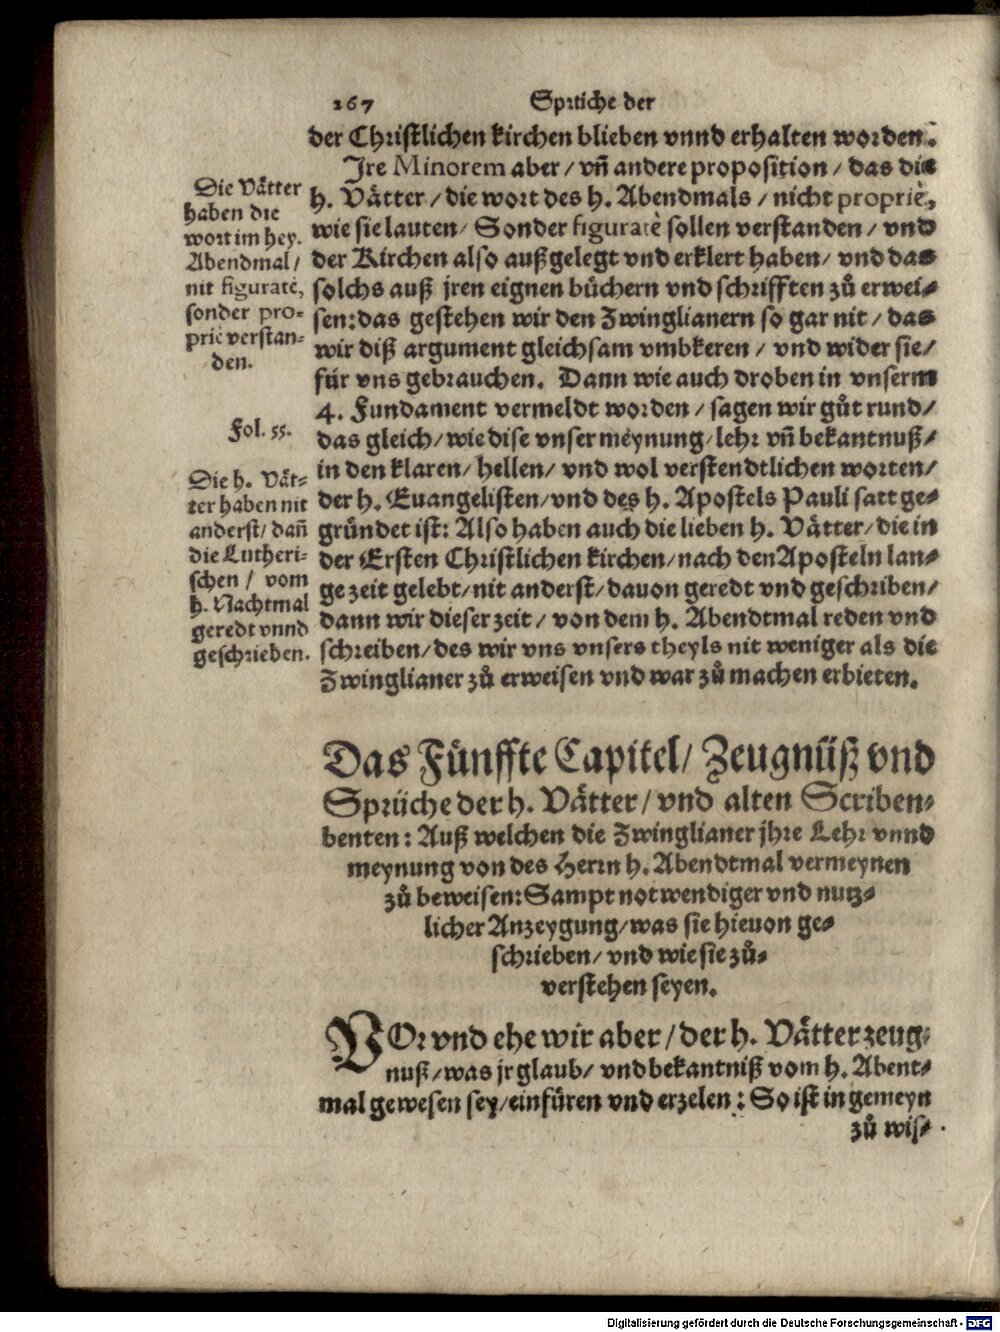 267
Sprüche der
der Christlichen kirchen blieben vnnd erhalten worden.
Jre Minorem aber / vñ andere proposition / das die
h. Vätter / die wort des h. Abendmals / nicht propriè,
wie sie lauten / Sonder figuratè sollen verstanden / vnd
der Kirchen also außgelegt vnd erklert haben / vnd das
solchs auß jren eignen büchern vnd schrifften zů erwei-
sen: das gestehen wir den Zwinglianern so gar nit / das
wir diß argument gleichsam vmbkeren / vnd wider sie /
für vns gebrauchen. Dann wie auch droben in vnserm
4. Fundament vermeldt worden / sagen wir gůt rund /
das gleich / wie dise vnser meynung / lehr vñ bekantnuß /
in den klaren / hellen / vnd wol verstendtlichen worten /
der h. Euangelisten / vnd des h. Apostels Pauli satt ge-
gründet ist: Also haben auch die lieben h. Vätter / die in
der Ersten Christlichen kirchen / nach den Aposteln lan-
ge zeit gelebt / nit anderst / dauon geredt vnd geschriben /
dann wir dieser zeit / von dem h. Abendtmal reden vnd
schreiben / des wir vns vnsers theyls nit weniger als die
Zwinglianer zů erweisen vnd war zů machen erbieten.
Die Vätter
haben die
wort im hey.
Abendmal /
nit figuratè,
sonder pro-
priè verstan-
den.
Fol. 55.
Die h. Vät-
ter haben nit
anderst / dañ
die Lutheri-
schen / vom
h. Nachtmal
geredt vnnd
geschrieben.
Das Fünffte Capitel / Zeugnüß vnd
Sprüche der h. Vätter / vnd alten Scriben-
benten: Auß welchen die Zwinglianer jhre Lehr vnnd
meynung von des Herrn h. Abendtmal vermeynen
zů beweisen: Sampt notwendiger vnd nutz-
licher Anzeygung / was sie hieuon ge-
schrieben / vnd wie sie zů-
verstehen seyen.
VOr vnd ehe wir aber / der h. Vätter zeug-
nuß / was jr glaub / vnd bekantniß vom h. Abent-
mal gewesen sey / einfüren vnd erzelen: So ist in gemeyn
zů wis-
Digitalisierung gefördert durch die Deutsche Forschungsgemeinschaft - DFG